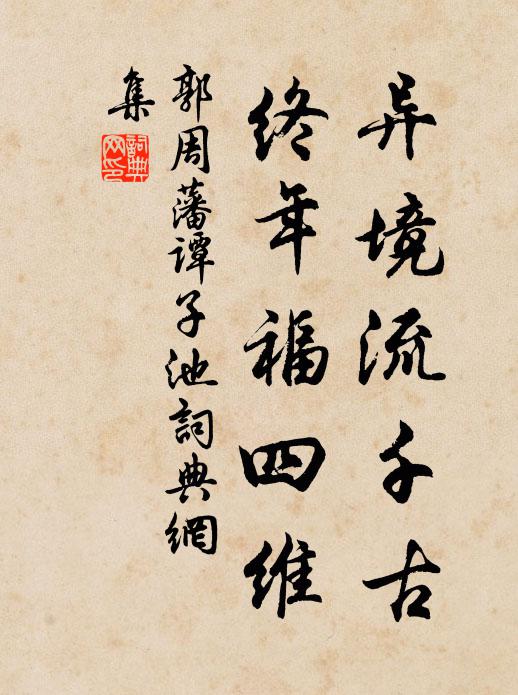 异境流千古
终年福四维
郭周藩谭子池詞典網
集
詞典
网印